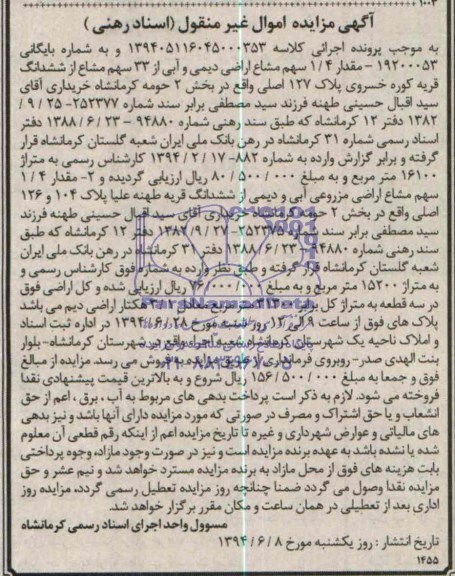 آگهی مزایده اموال غیر منقول (اسناد رهنی)
به موجب پرونده اجرائی کلاسه ۱۳۹۴۰۵۱۱۶۰۴۵۰۰۰۳۵۳ و به شماره بایگانی
۱۹۲۰۰۰۵۳ – مقدار ۴/۱ سهم مشاع اراضی دیمی و آبی از ۳۳ سهم مشاع از ششدانگ
قریه کوره خسروی پلاک ۱۲۷ اصلی واقع در بخش ۲ حومه کرمانشاه خریداری آقای
سید اقبال حسینی طهنه فرزند سید مصطفی برابر سند شماره ۲۵۲۳۷۷- ۲۵ / ۹ /
۱۳۸۲ دفتر ۱۲ کرمانشاه که طبق سند رهنی شماره ۹۴۸۸۰ – ۲۳ / ۶ / ۱۳۸۸ دفتر
اسناد رسمی شماره ۳۱ کرمانشاه در رهن بانک ملی ایران شعبه گلستان کرمانشاه قرار
گرفته و برابر گزارش وارده به شماره ۸۸۲- ۱۷ / ۲ / ۱۳۹۴ کارشناس رسمی به متراژ
۱۶۱۰۰ متر مربع و به مبلغ ۰۰۰ / ۵۰۰ / ۸۰ ریال ارزیابی گردیده و ۲- مقدار ۴/۱
سهم مشاع اراضی مزروعی آبی و دیمی از ششدانگ قریه طهنه علیا پلاک ۱۰۴ و ۱۲۶
اصلی واقع در بخش ۲ حومه کرمانشاه خریداری آقای سید اقبال حسینی طهنه فرزند
سید مصطفی برابر سند شماره ۲۵۲۳۷۵- ۲۷ / ۹ / ۱۳۸۲ دفتر ۱۲ کرمانشاه که طبق
سند رهنی شماره ۹۴۸۸۰ – ۲۳ / ۶ / ۱۳۸۸ دفتر ۳۱ کرمانشاه در رهن بانک ملی ایران
شعبه گلستان کرمانشاه قرار گرفته و طبق نظر وارده به شماره فوق کارشناس رسمی و
به متراژ ۱۵۲۰۰ متر مربع و به مبلغ ۰۰۰ / ۰۰۰ / ۷۶ ریال ارزیابی شده و کل اراضی فوق
در سه قطعه به متراژ کل برابر متر مربع معادل هکتار اراضی دیم می باشد
پلاک های فوق از ساعت ۹ الی ۱۲ روز شنبه مورخ ۲۸ / ۶ / ۱۳۹۴ در اداره ثبت اسناد
و املاک ناحیه یک شهرستان کرمانشاه شعبه اجراء واقع در شهرستان کرمانشاه- بلوار
بنت الهدی صدر- روبروی فرمانداری از طریق مزایده به فروش می رسد. مزایده از مبالغ
فوق و جمعا به مبلغ ۰۰۰ / ۵۰۰ / ۱۵۶ ریال شروع و به بالاترین قیمت پیشنهادی نقدا
فروخته می شود. لازم به ذکر است پرداخت بدهی های مربوط به آب ، برق ، اعم از حق
انشعاب و یا حق اشتراک و مصرف در صورتی که مورد مزایده دارای آنها باشد و نیز بدهی
های مالیاتی و عوارض شهرداری و غیره تا تاریخ مزایده اعم از اینکه رقم قطعی آن معلوم
شده یا نشده باشد به عهده برنده مزایده است و نیز در صورت وجود مازاد، وجوه پرداختی
بابت هزینه های فوق از محل مازاد به برنده مزایده مسترد خواهد شد و نیم عشر و حق
مزایده نقدا وصول می گردد ضمنا چنانچه روز مزایده تعطیل رسمی گردد، مزایده روز
اداری بعد از تعطیلی در همان ساعت و مکان مقرر برگزار خواهد شد.
مسوول واحد اجرای اسناد رسمی کرمانشاه
تاریخ انتشار : روز یکشنبه مورخ ۸ / ۶ / ۱۳۹۴
۱۴۵۵